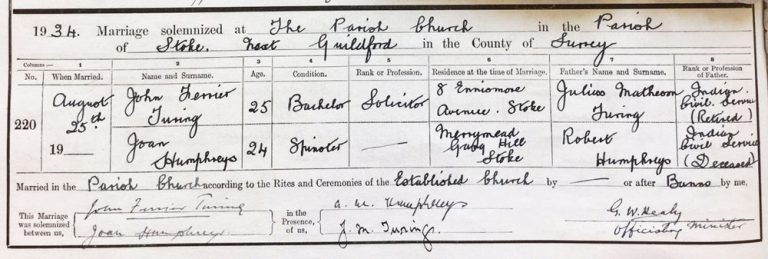 1934. Marriage solemnized at The Parish Church in the Parish
of Stoke next Guildford in the County of Surrey
Columns:— 1 2 3 4 5 6 7 8
No. When Married. Name and Surname. Age. Condition. Rank or Profession. Residence at the time of Marriage. Father's Name and Surname. Rank or Profession of Father.
220 August 25th 19— John Ferrier Turing 25 Bachelor Solicitor 8 Ennismore Avenue. Stoke Julius Mathison Turing Indian Civil Service (Retired)
Joan Humphreys 24 Spinster — Merrymead Gang Hill Stoke Robert Humphreys Indian Civil Service (Deceased)
Married in the Parish Church according to the Rites and Ceremonies of the Established Church by — or after Banns by me,
This Marriage was solemnized between us, John Ferrier Turing in the Presence of us, A. M. Humphreys G. W. Healy
Joan Humphreys J. M. Turing. Officiating Minister